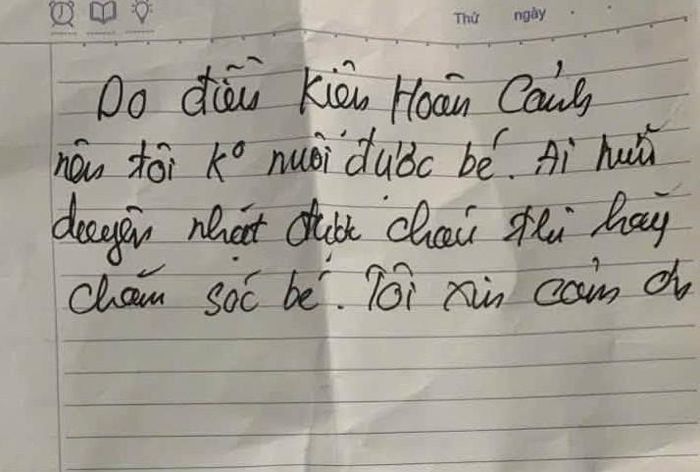 Thứ ngày
Do điều kiện Hoàn Cảnh
nên tôi kº nuôi được bé. Ai hữu
duyên nhặt được cháu thì hãy
chăm sóc bé. Tôi xin cảm ơn